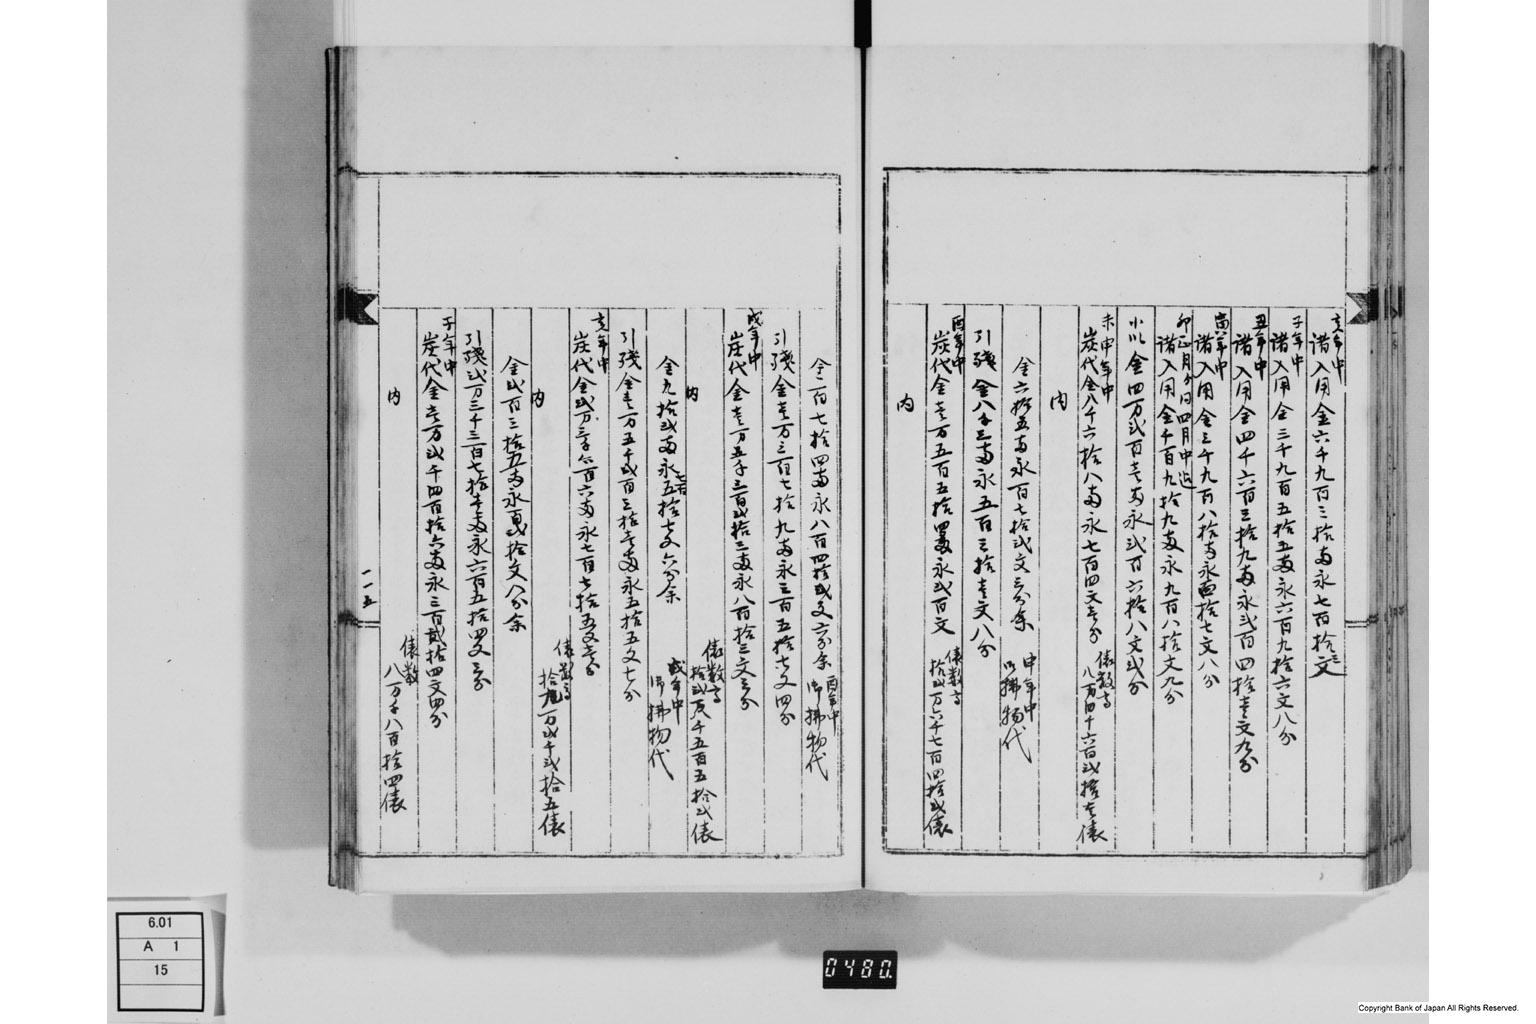 亥年中
諸入用金六千九百三拾両永七百拾三文
子年中
諸入用金三千九百五拾五両永六百九拾六文八分
丑年中
諸入用金四千六百三拾九両永弐百四拾壱文九分
寅年中
諸入用金三千九百八拾両永四拾七文八分
卯正月ゟ同四月中迄
諸入用金千百九拾九両永九百八拾文九分
小以金四万弐百壱両永弐百六拾八文弐分
未申年中
炭代金八千六拾八両永七百四文壱分
俵数高
八万四千六百弐拾七俵
内
金六拾五両永百七拾弐文三分余
申年中
御払物代
引残金八千三両永五百三拾壱文八分
酉年中
炭代金壱万五百五拾四両永弐百文
俵数高
拾弐万六千七百四拾弐俵
内
金百七拾四両永八百四拾弐文六分余
酉年中
御払物代
引残金壱万三百七拾九両永三百五拾七文四分
戌年中
炭代金壱万五千三百弐拾三両永八百拾三文三分
俵数高
拾弐万千五百五拾弐俵
内
金九拾弐両永七百五拾七文六分余
戌年中
御払物代
引残金壱万五千弐百三拾壱両永五拾五文七分
亥年中
炭代金弐万三千六百六両永七百七拾五文壱分
俵数高
拾九万弐千弐拾五俵
内
金弐百三拾五両永百弐拾文八分余
引残弐万三千三百七拾壱両永六百五拾四文三分
子年中
炭代金壱万弐千四百拾六両永三百弐拾四文四分
俵数
八万千八百拾四俵
内
一一五
6.01
A 1
15
0480.
Copyright Bank of Japan All Rights Reserved.